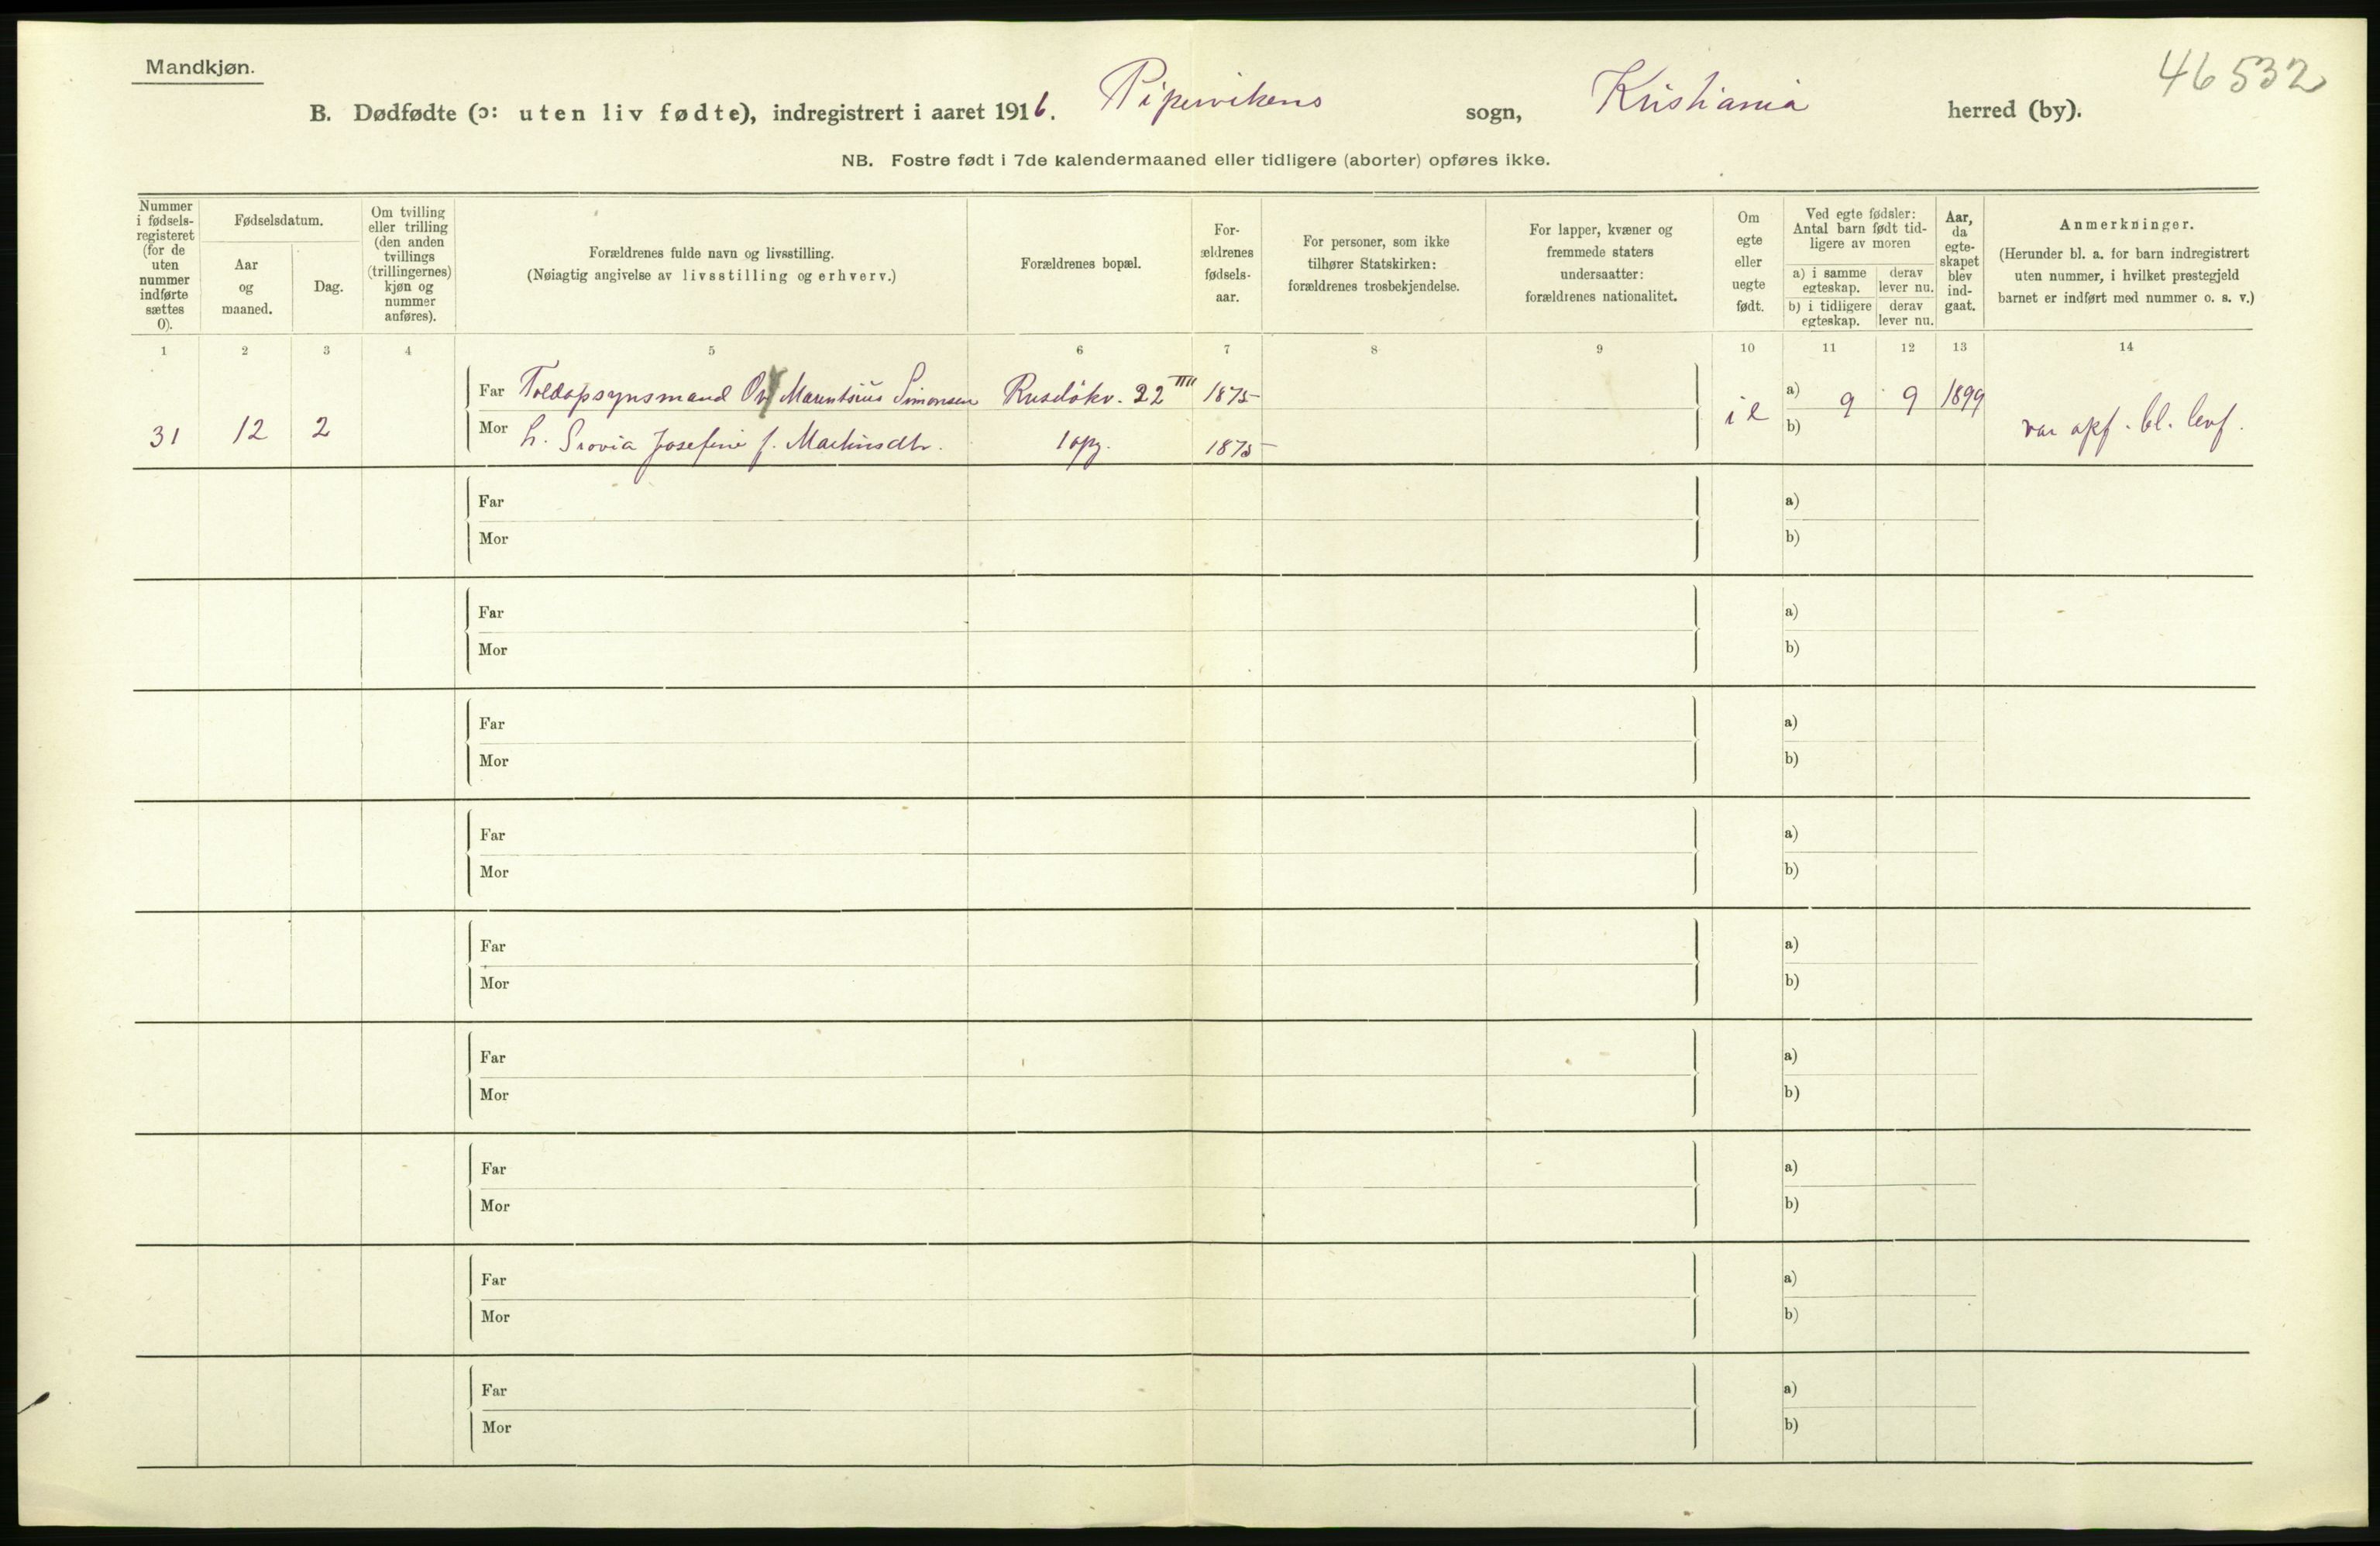 Mandkjøn.
46 532
B. Dødfødte (ɔ: uten liv fødte), indregistrert i aaret 1916. Pipervikens sogn, Kristiania herred (by).
NB. Fostre født i 7de kalendermaaned eller tidligere (aborter) opføres ikke.
Nummer
i fødsels-
registeret
(for de
uten
nummer
indførte
sættes
0).
Fødselsdatum.
Aar
og
maaned.
Dag.
Om tvilling
eller trilling
(den anden
tvillings
(trillingernes)
kjøn og
nummer
anføres).
Forældrenes fulde navn og livsstilling.
(Nøiagtig angivelse av livsstilling og erhverv.)
Forældrenes bopæl.
For-
ældrenes
fødsels-
aar.
For personer, som ikke
tilhører Statskirken:
forældrenes trosbekjendelse.
For lapper, kvæner og
fremmede staters
undersaatter:
forældrenes nationalitet.
Om
egte
eller
uegte
født.
Ved egte fødsler:
Antal barn født tid-
ligere av moren
a) i samme
egteskap.
derav
lever nu.
b) i tidligere
egteskap.
derav
lever nu.
Aar,
da
egte-
skapet
blev
ind-
gaat.
Anmerkninger.
(Herunder bl. a. for barn indregistrert
uten nummer, i hvilket prestegjeld
barnet er indført med nummer o. s. v.)
1 2 3 4 5 6 7 8 9 10 11 12 13 14
Far Toldopsynsmand Simonsen Ruseløkv. 22 IIII 1875 a) 9 9 1899
31 12 2 Mor h. Josefine f. Martinsdtr. 1 opg. 1875 b) var opf. bl. levf.
Far a)
Mor b)
Far a)
Mor b)
Far a)
Mor b)
Far a)
Mor b)
Far a)
Mor b)
Far a)
Mor b)
Far a)
Mor b)
Far a)
Mor b)
Far a)
Mor b)